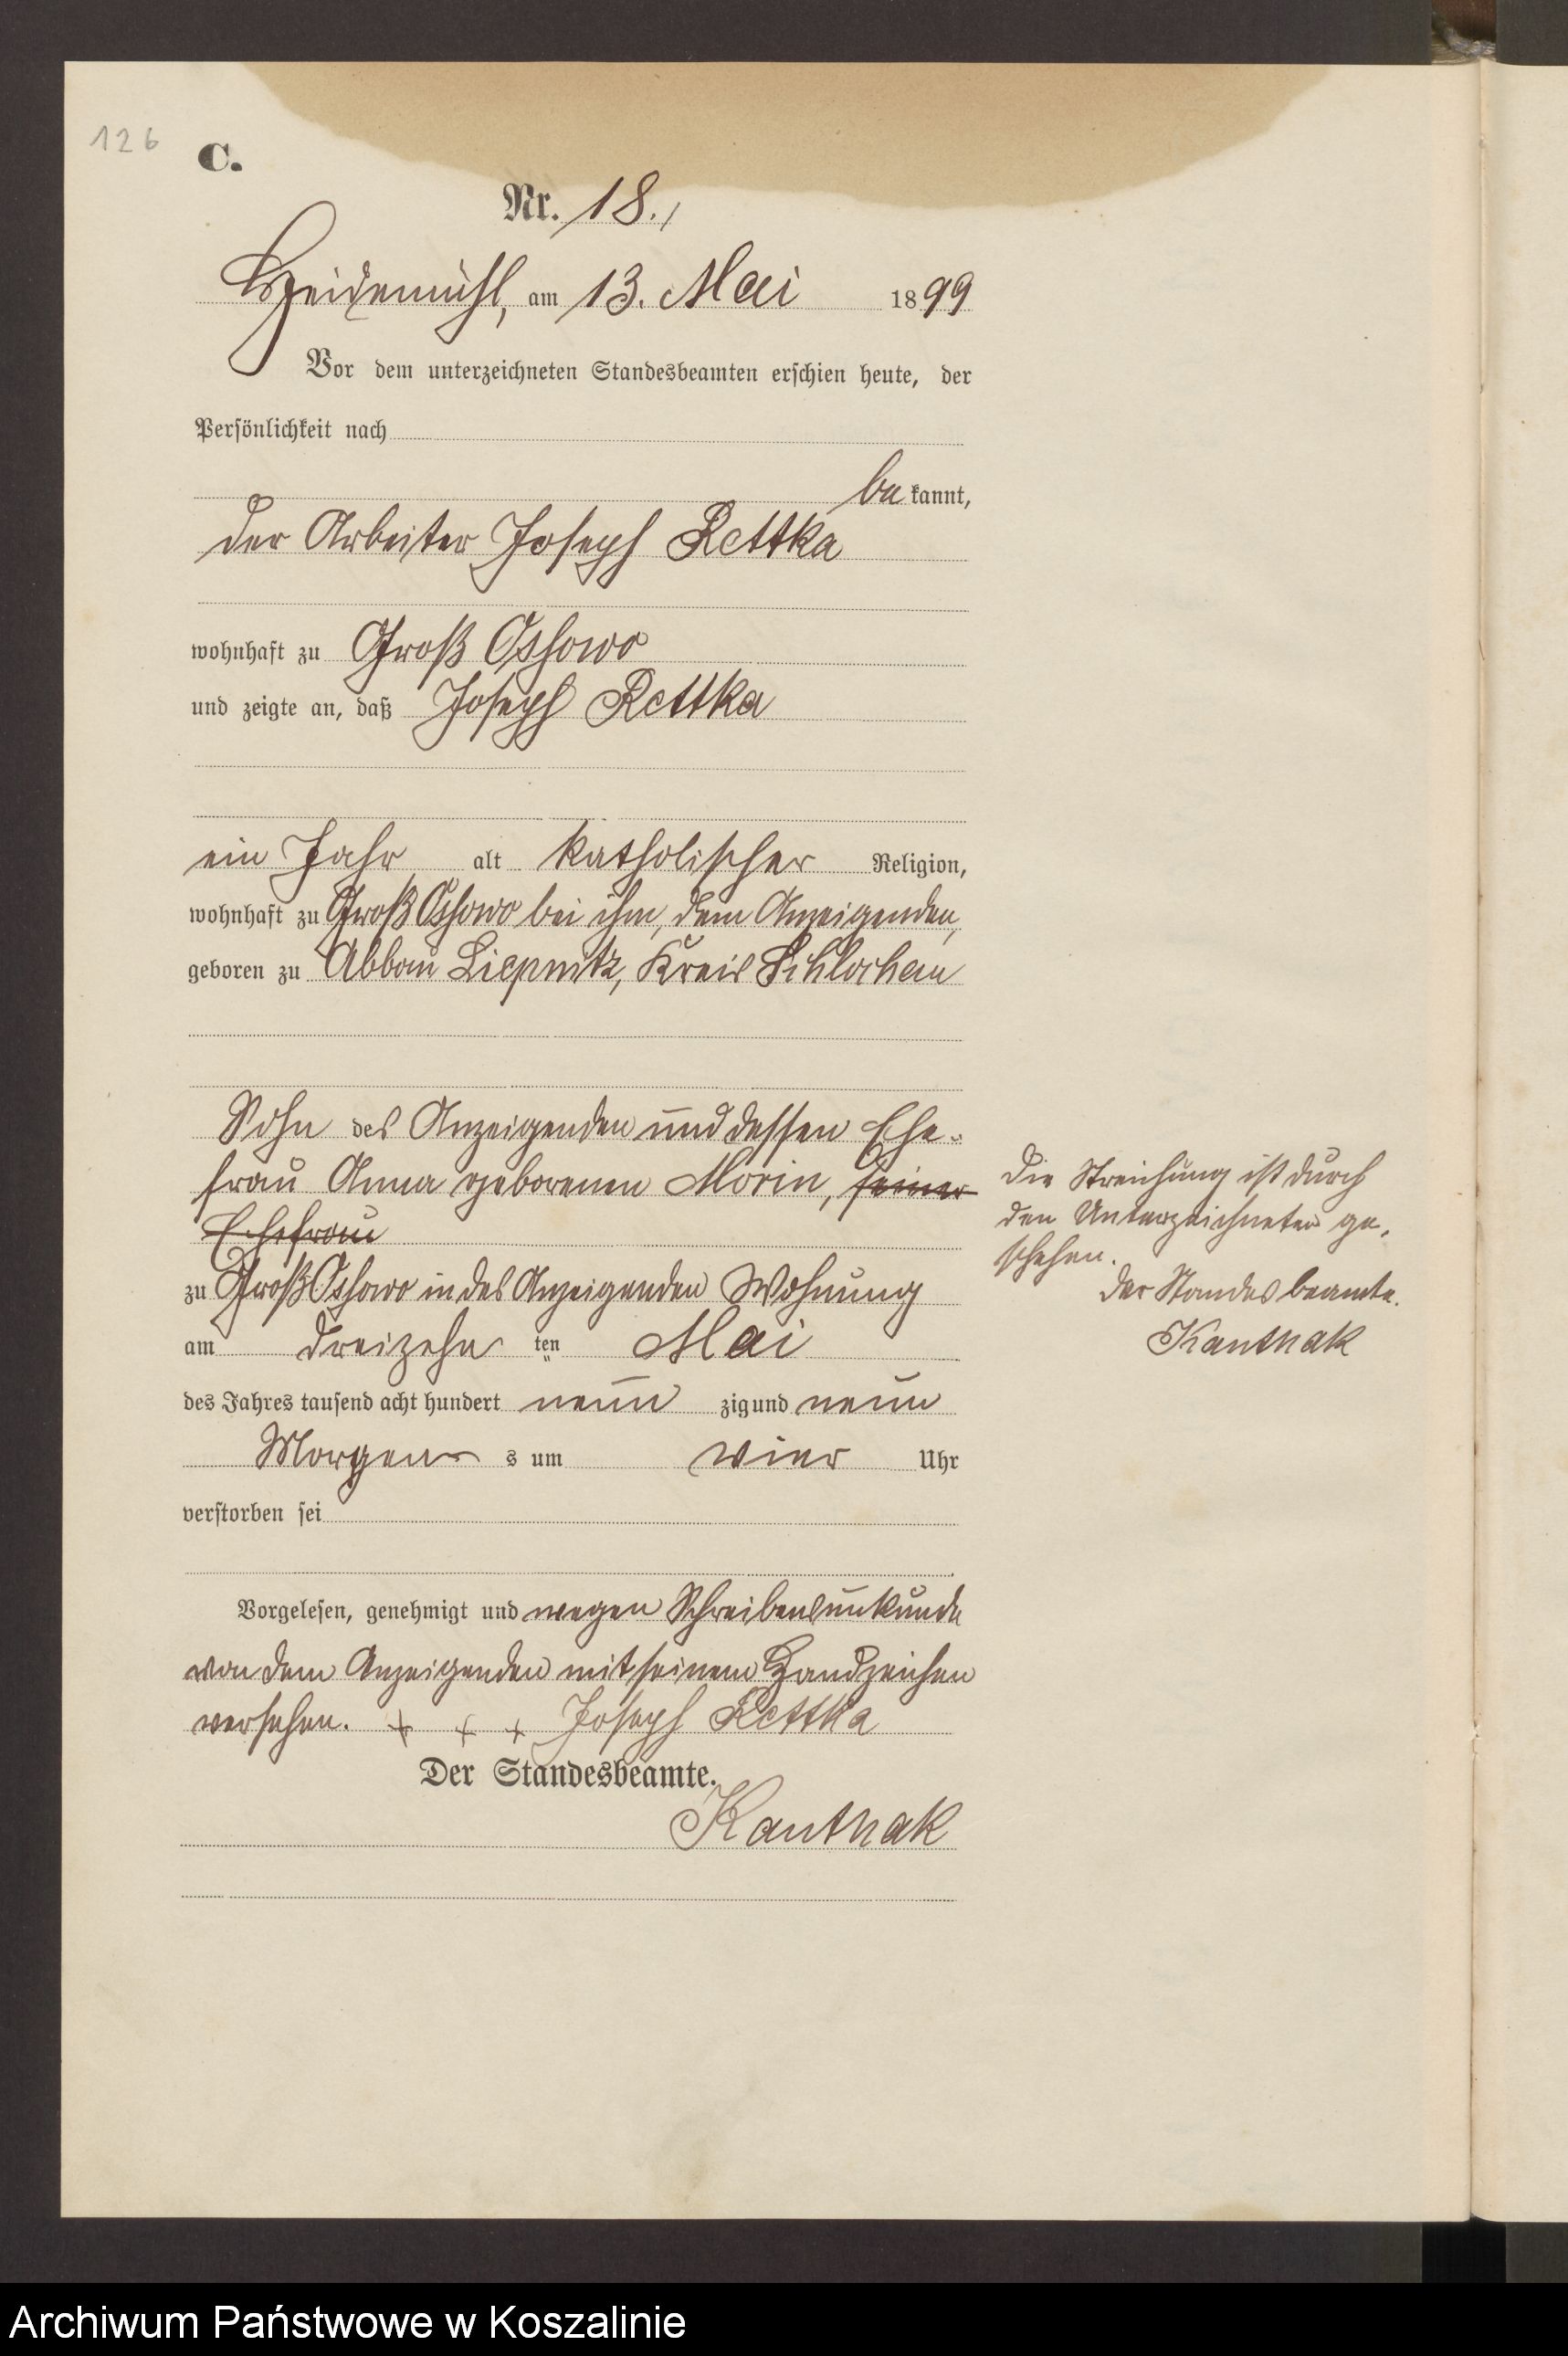 126
C.
Nr. 18.
Heidemühl, am 13. Mai 1899
Vor dem unterzeichneten Standesbeamten erschien heute, der
Persönlichkeit nach
be kannt,
der Arbeiter Joseph Rettka
wohnhaft zu Groß Ossowo
und zeigte an, daß Joseph Rettka
ein Jahr alt katholischer Religion,
wohnhaft zu Groß Ossowo bei ihm, dem Anzeigenden,
geboren zu Abbau Liepnitz, Kreis Schlochau
Sohn des Anzeigenden und dessen Ehe-
frau Anna geborenen Morin, seiner
Ehefrau
zu Groß Ossowo in des Anzeigenden Wohnung
am dreizehn ten Mai
des Jahres tausend acht hundert neun zig und neun
Morgen s um vier Uhr
verstorben sei
Vorgelesen, genehmigt und wegen Schreibensunkunde
von dem Anzeigenden mit seinem Handzeichen
versehen. + + + Joseph Rettka
Der Standesbeamte.
Kanthak
Die Streichung ist durch
den Unterzeichneten ge-
schehen.
Der Standesbeamte.
Kanthak
Archiwum Państwowe w Koszalinie